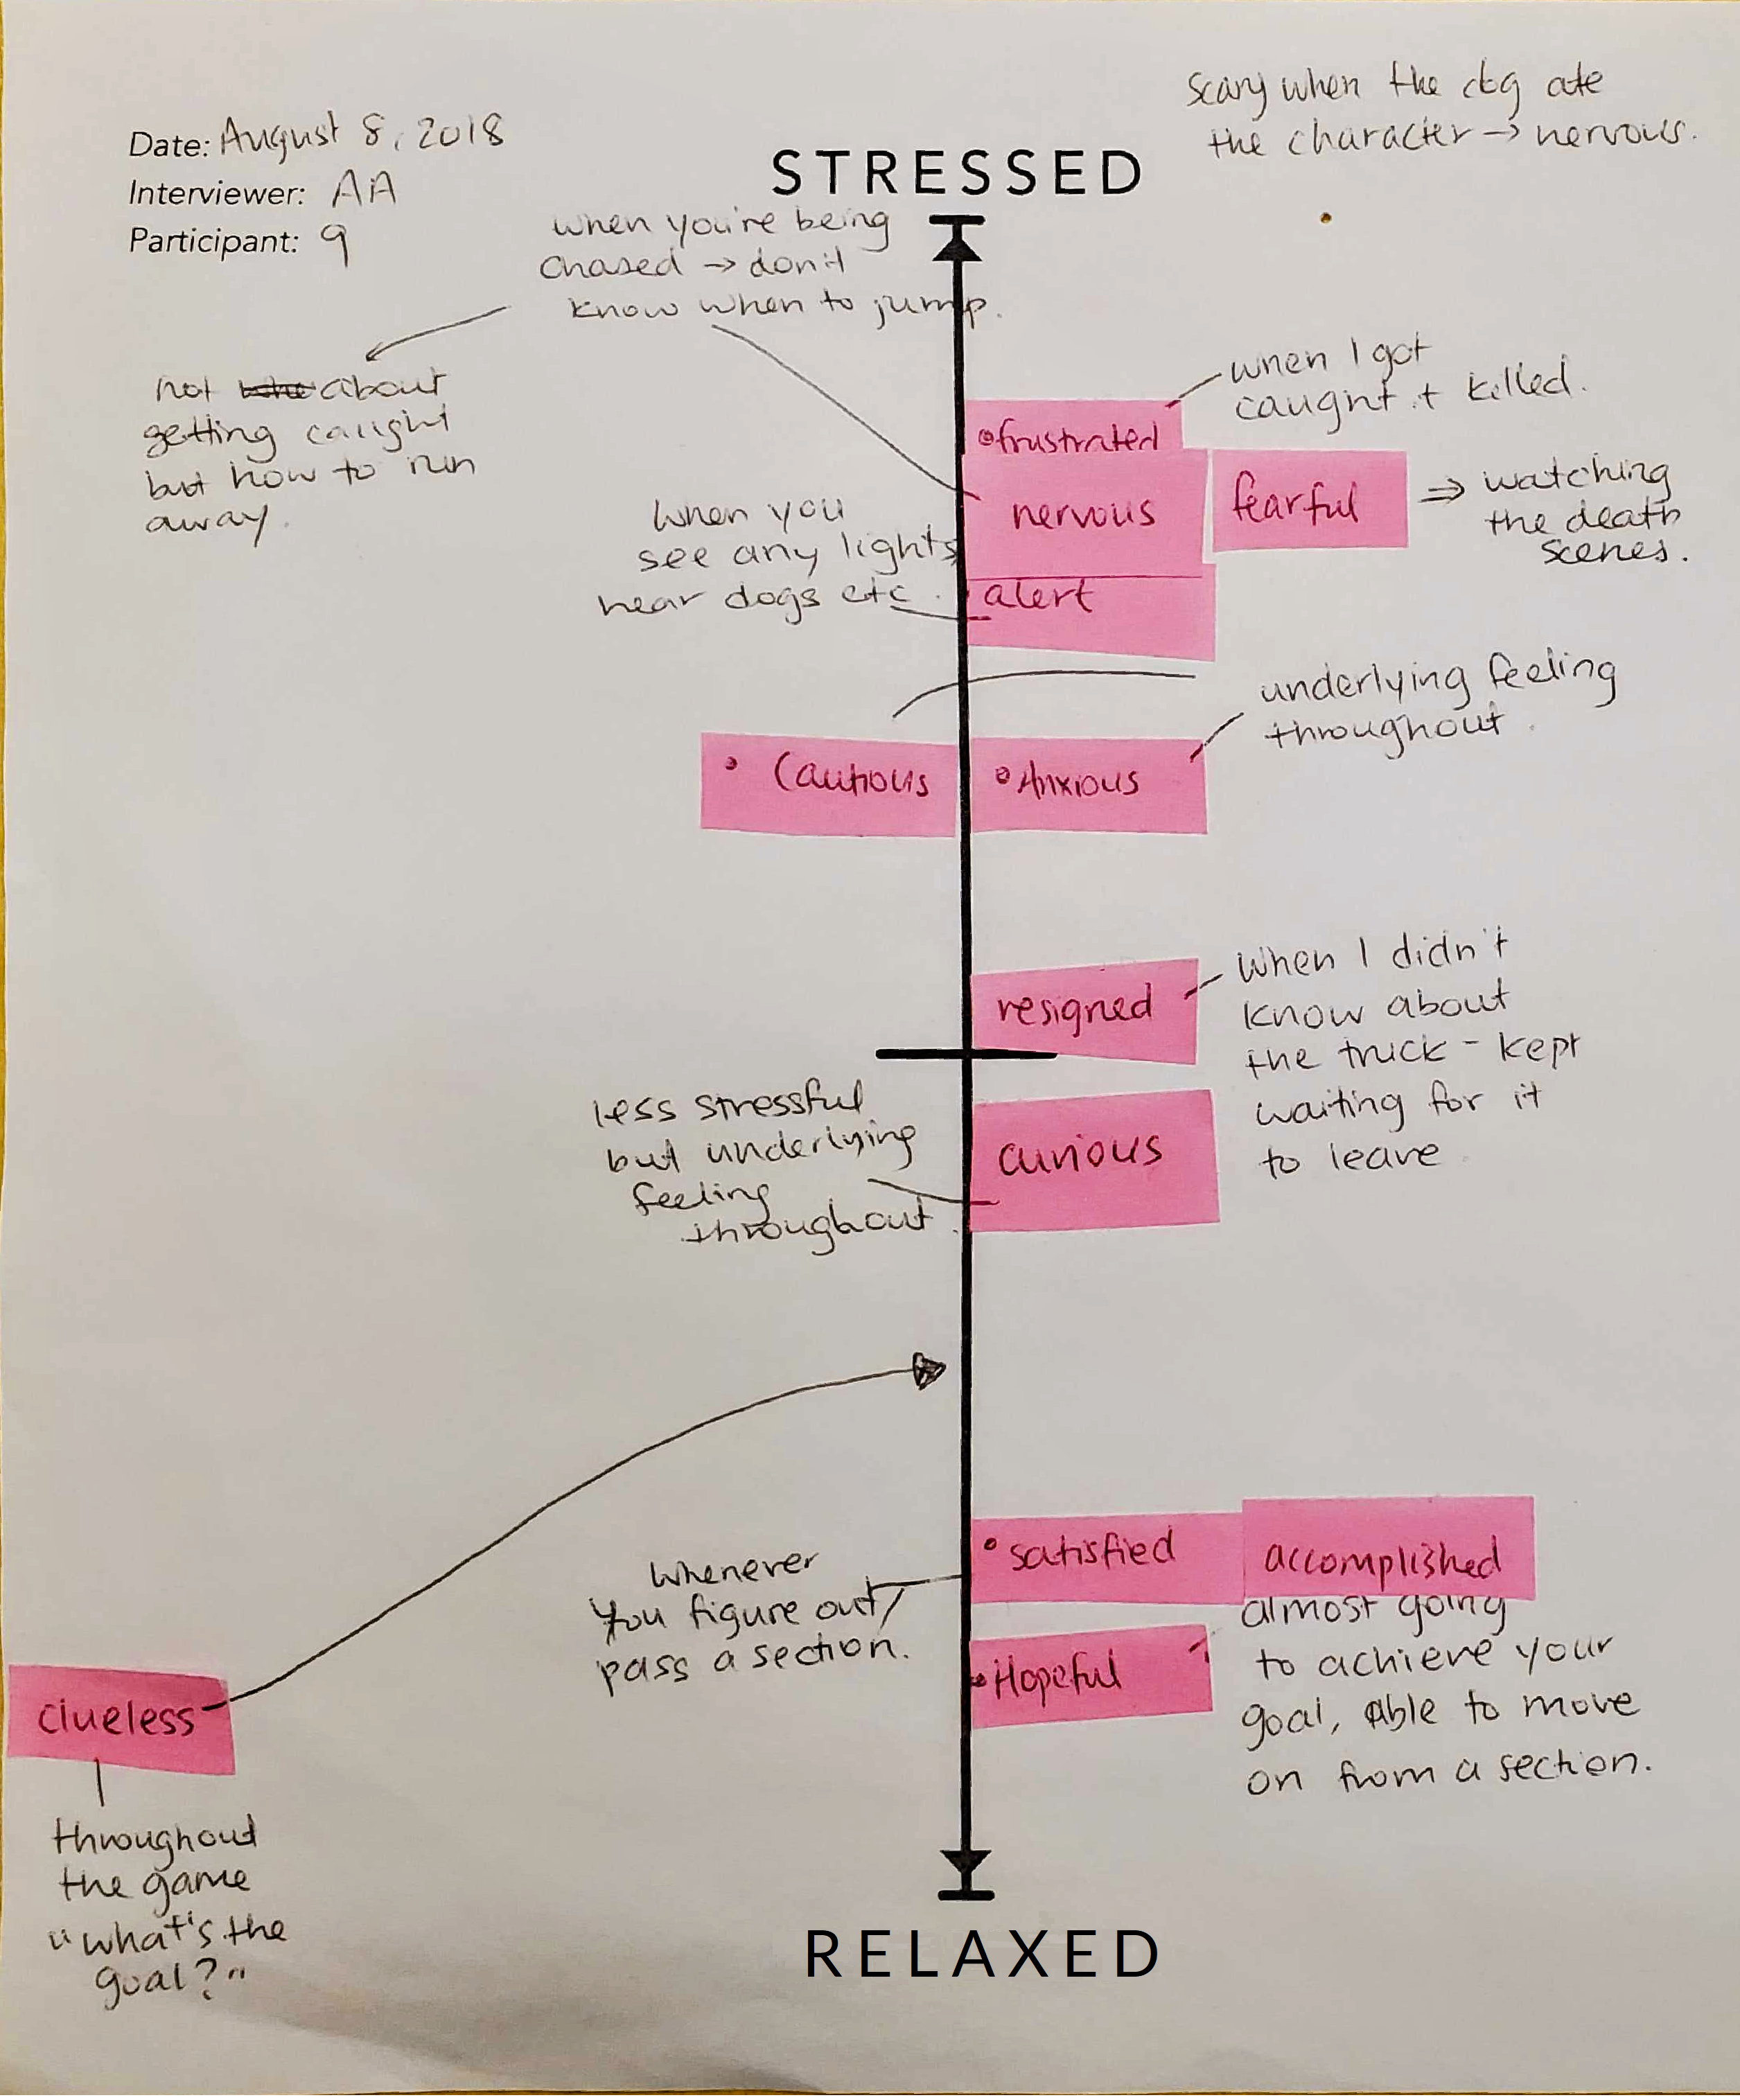 Date: August 8, 2018
Interviewer: AA
Participant: 9
Scary when the dog ate
the character → nervous.
STRESSED
when you're being
chased → don't
know when to jump.
not about
getting caught
but how to run
away.
when I got
caught + killed.
frustrated
nervous
fearful
⇒ watching
the death
scenes.
when you
see any lights,
hear dogs etc.
alert
underlying feeling
throughout.
Cautious
Anxious
resigned
When I didn't
know about
the truck - kept
waiting for it
to leave
less stressful
but underlying
feeling
throughout.
curious
satisfied
accomplished
Whenever
you figure out/
pass a section.
Hopeful
almost going
to achieve your
goal, able to move
on from a section.
clueless
throughout
the game
"what's the
goal?"
RELAXED